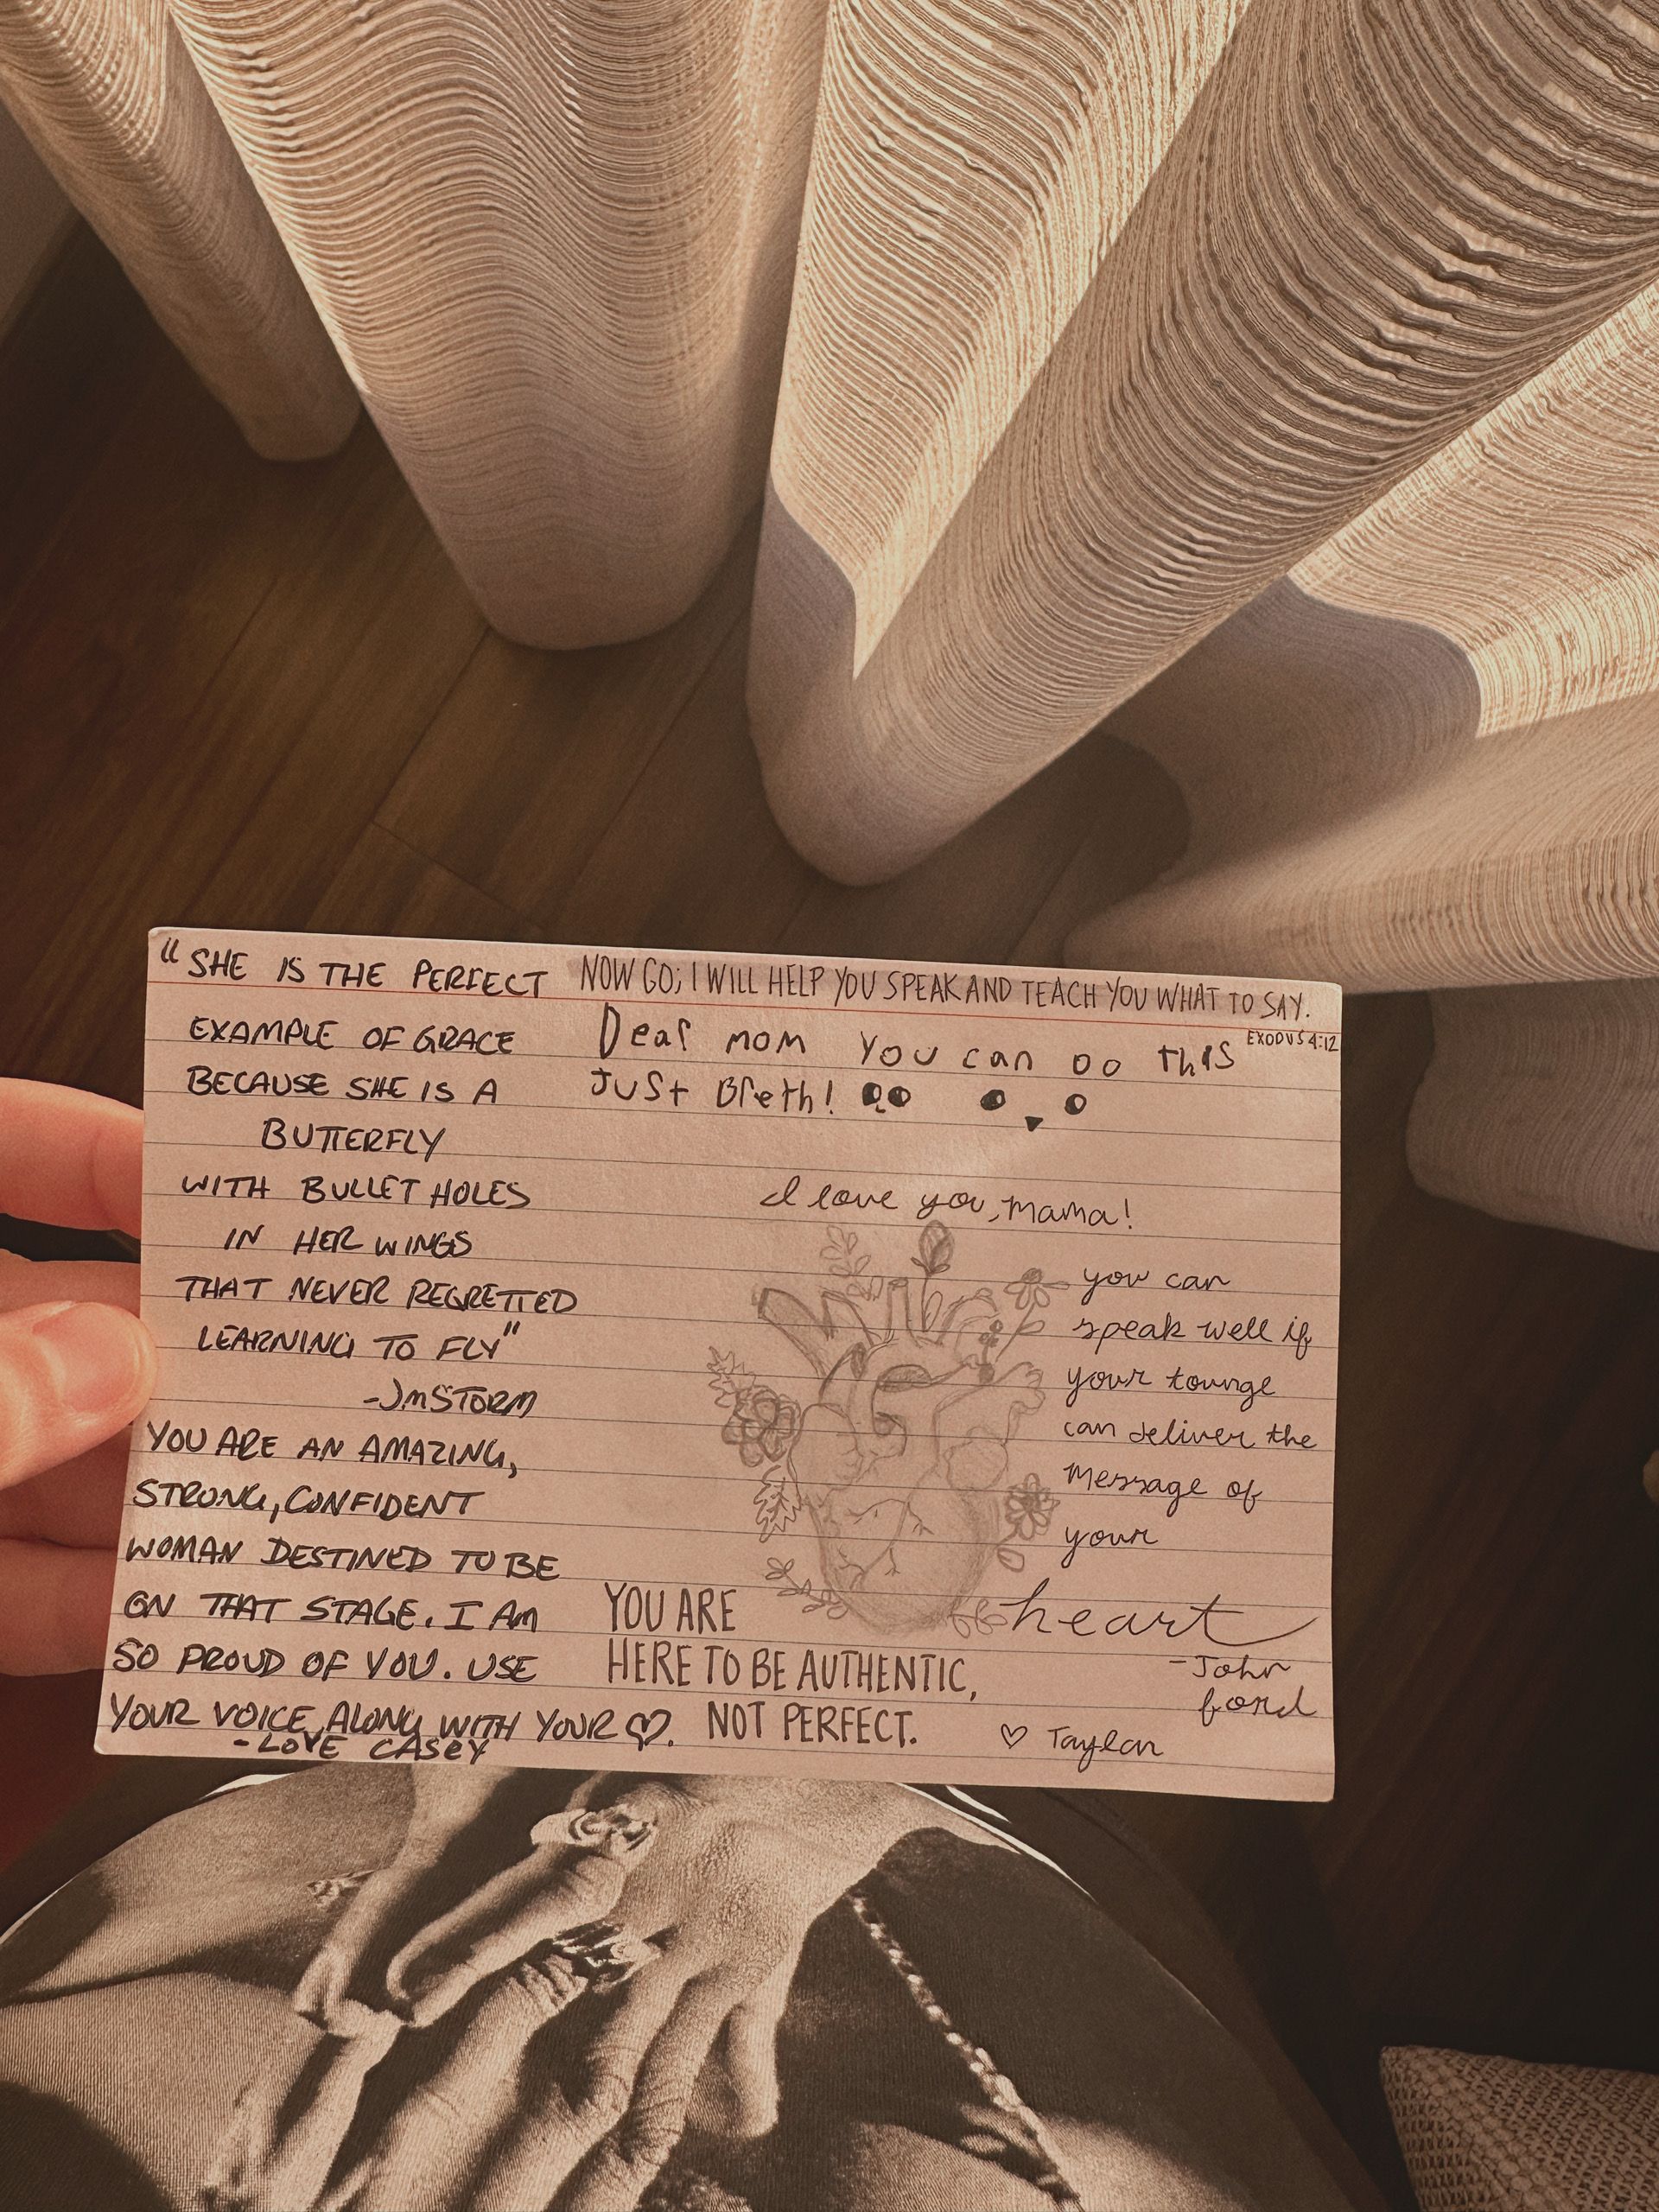 "SHE IS THE PERFECT
EXAMPLE OF GRACE
BECAUSE SHE IS A
BUTTERFLY
WITH BULLET HOLES
IN HER WINGS
THAT NEVER REGRETTED
LEARNING TO FLY"
-JMSTORM
YOU ARE AN AMAZING,
STRONG, CONFIDENT
WOMAN DESTINED TO BE
ON THAT STAGE. I AM
SO PROUD OF YOU. USE
YOUR VOICE ALONG WITH YOUR ♡.
-LOVE CASEY
NOW GO; I WILL HELP YOU SPEAK AND TEACH YOU WHAT TO SAY.
EXODUS 4:12
Dear mom you can do this
Just Breth!
I love you, mama!
you can
speak well if
your tounge
can deliver the
message of
your
heart
-John
ford
♡ Taylor
YOU ARE
HERE TO BE AUTHENTIC,
NOT PERFECT.